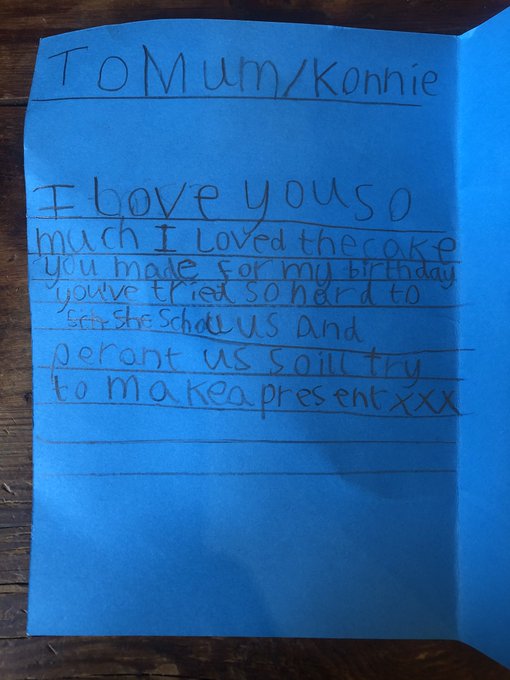 To Mum/Konnie
I Love you so
much I Loved the cake
you made for my birthday
you've tried so hard to
us and
perant us so ill try
to make a present xxx